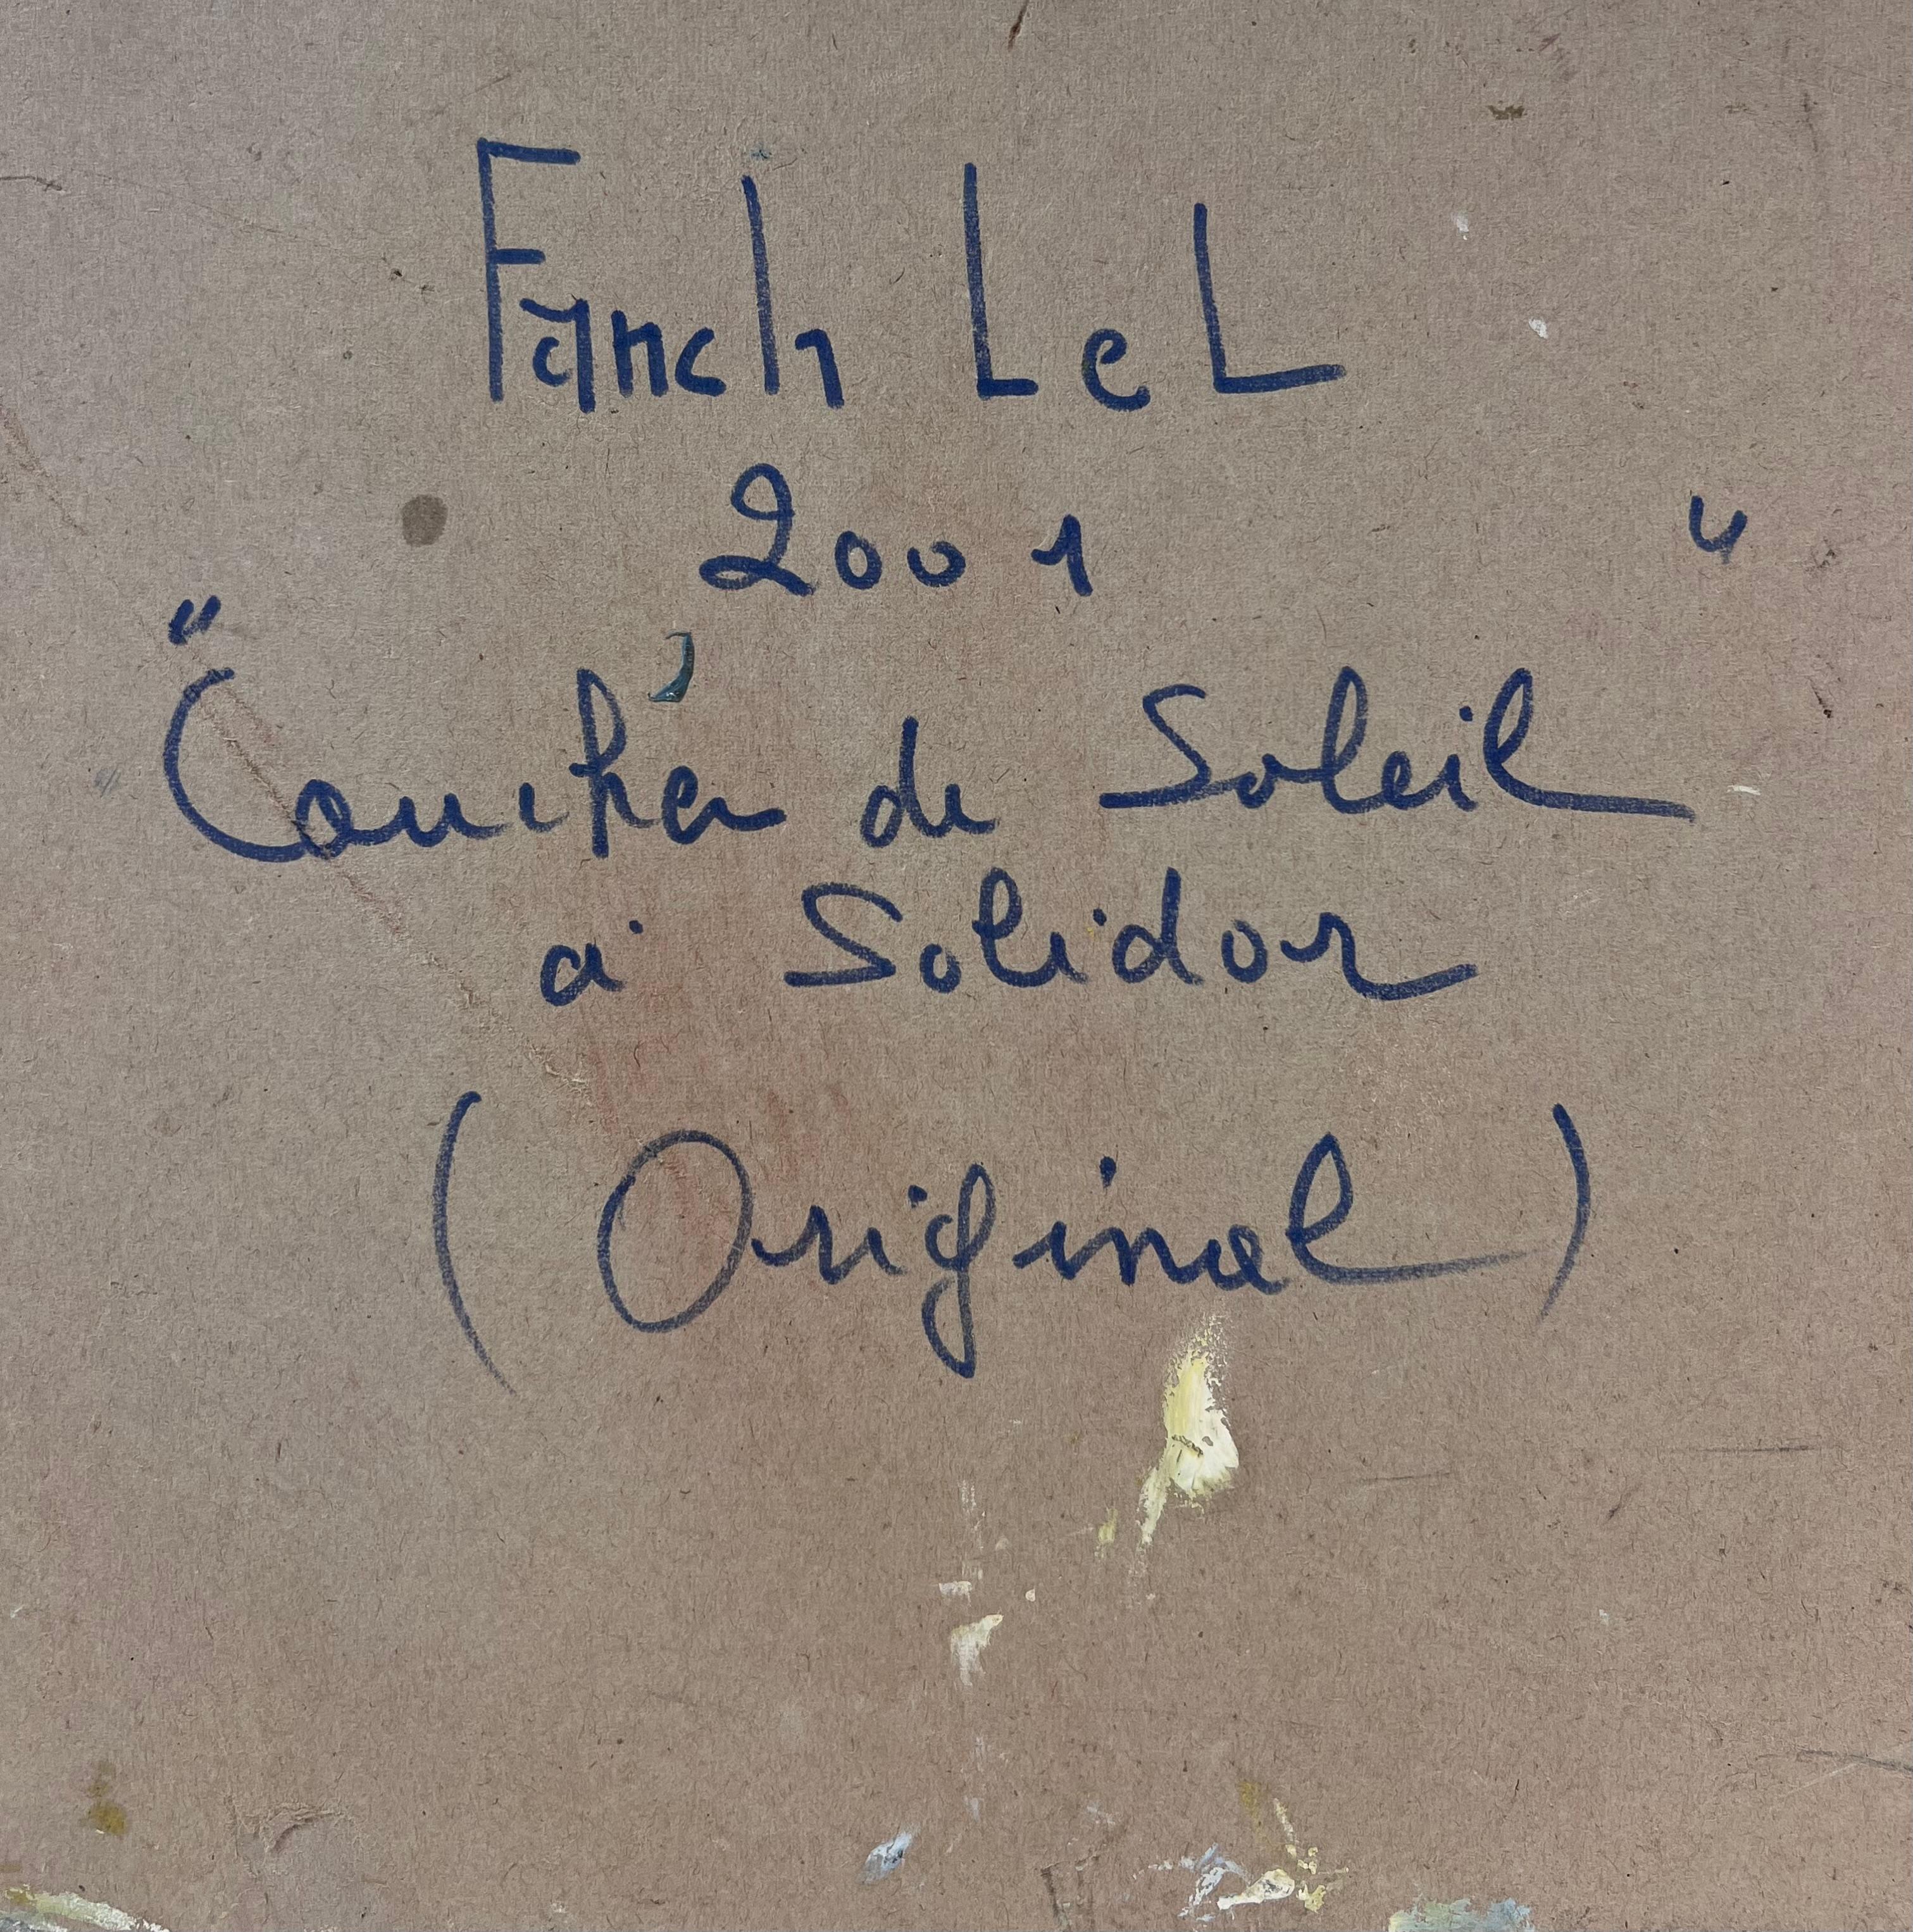 Fanch LeL
2001
"Coucher de Soleil"
à Solidor
(Original)